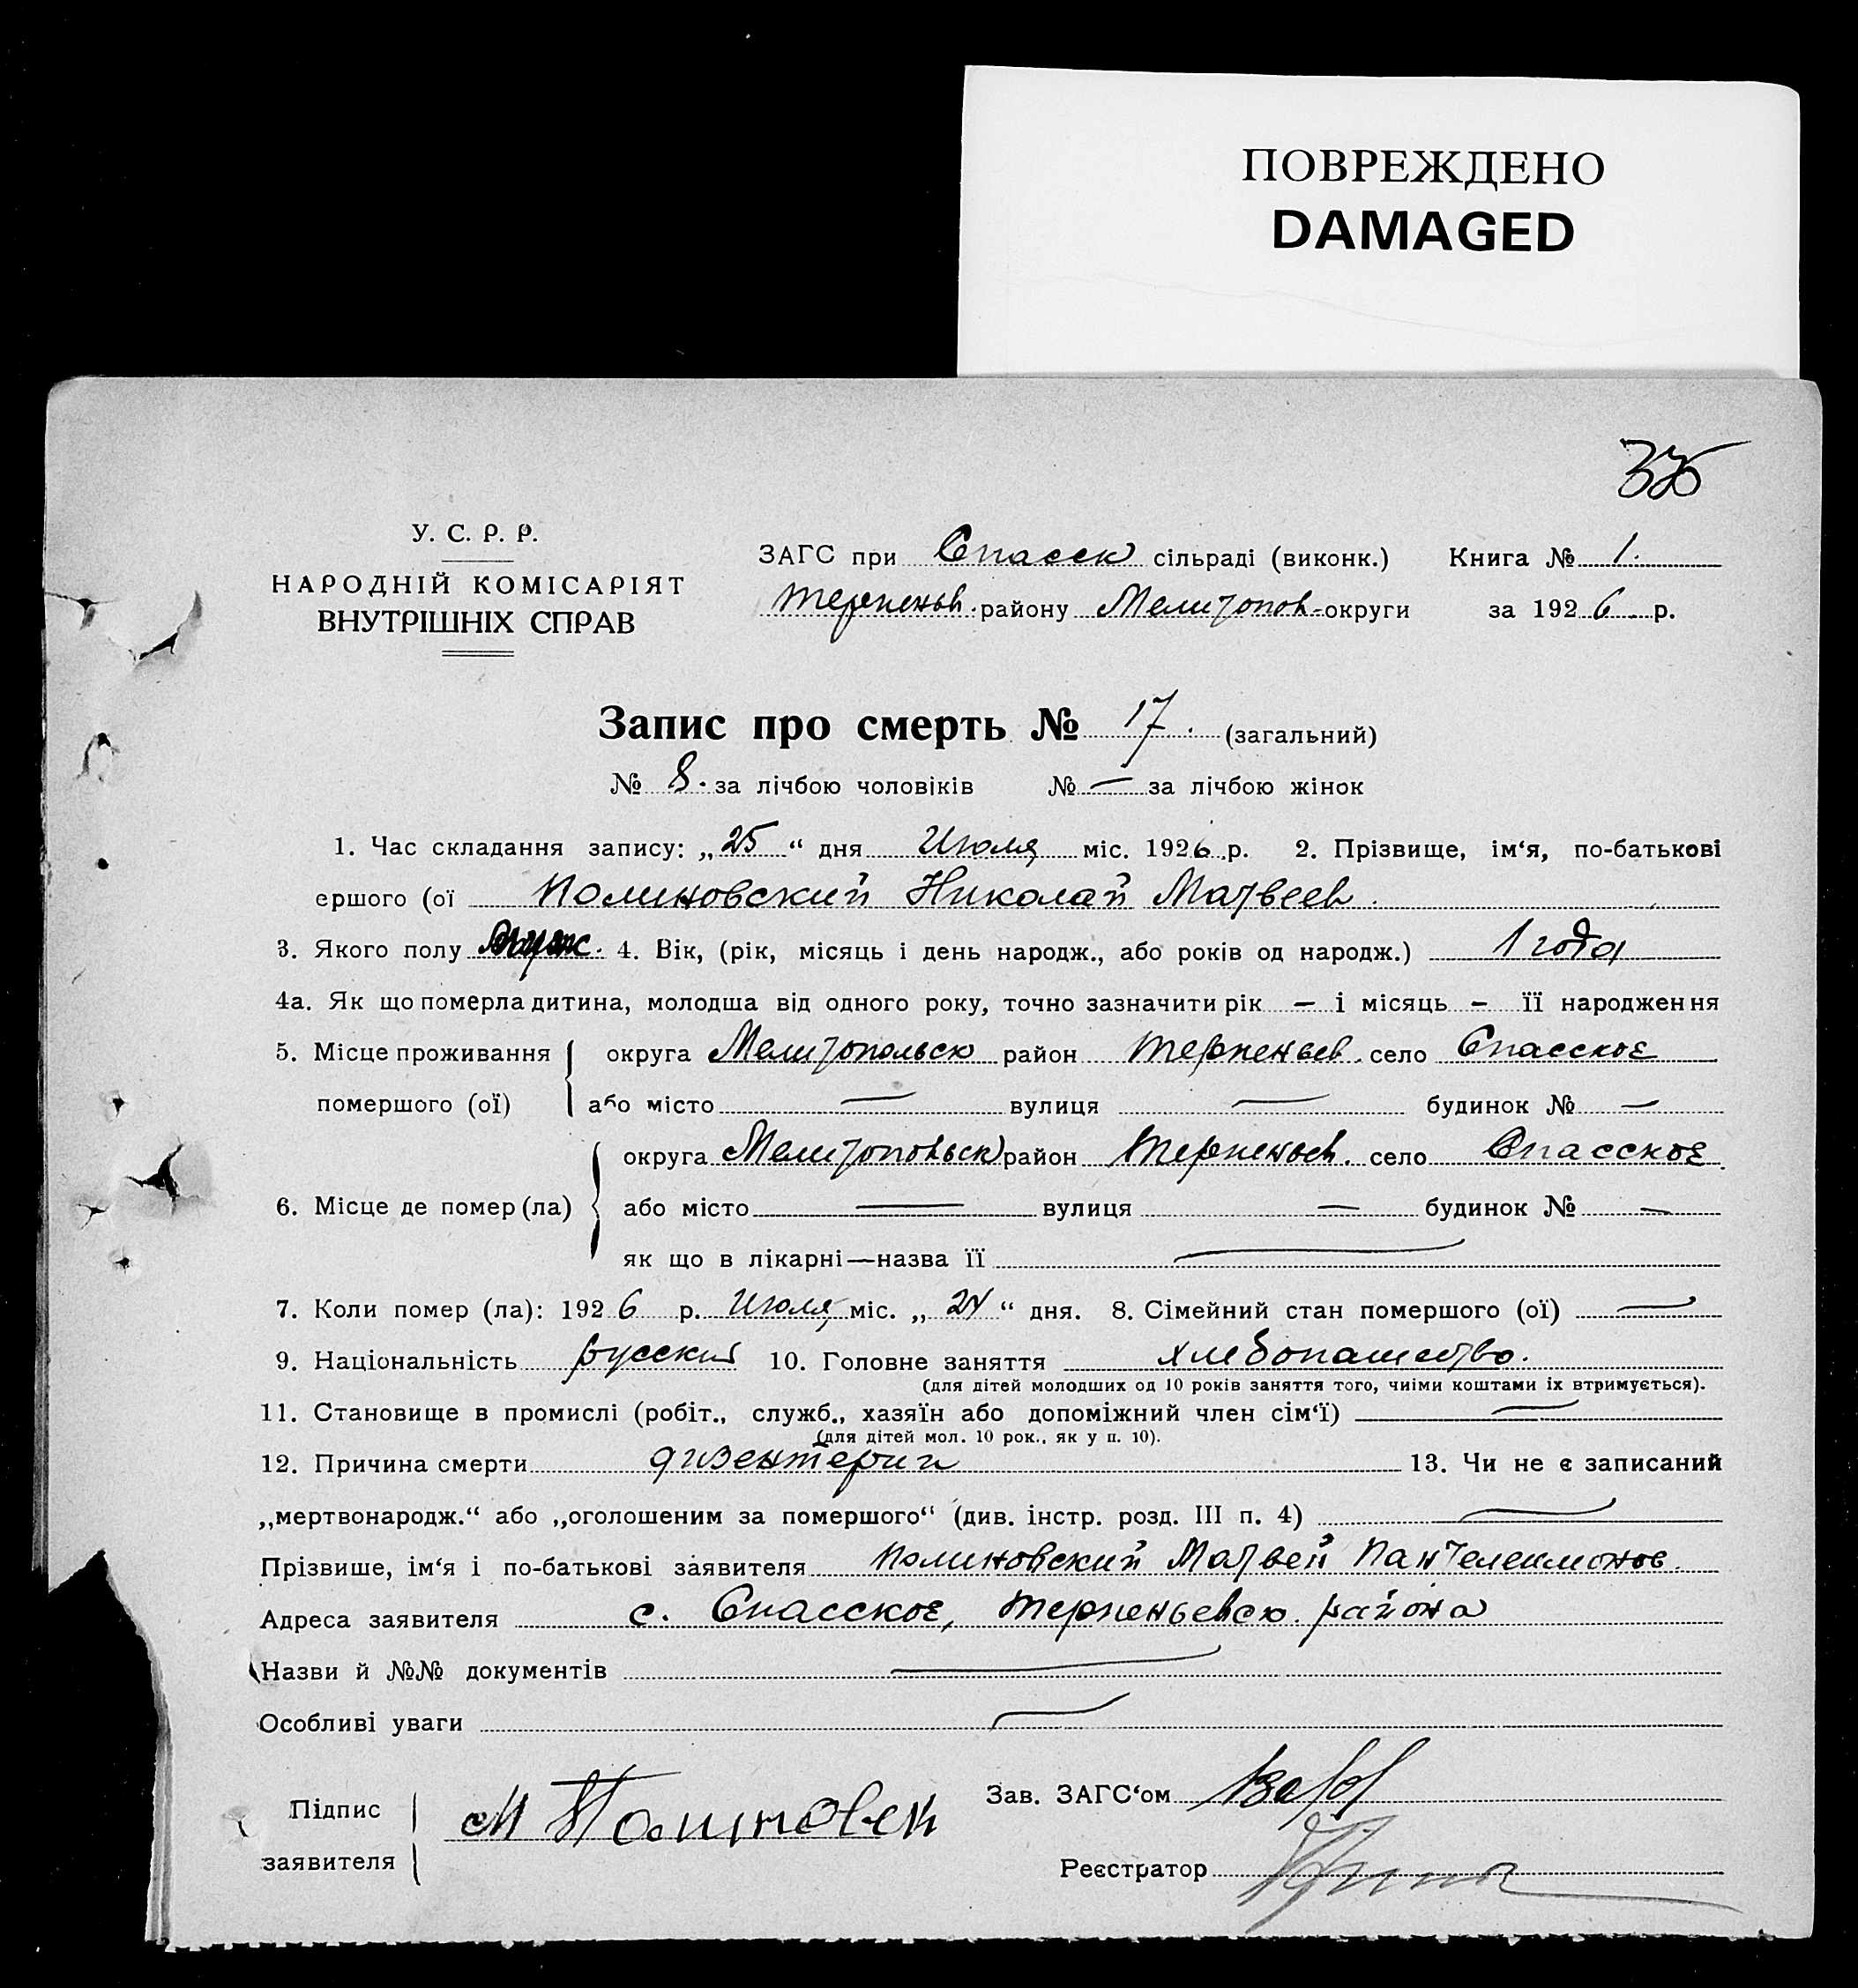 ПОВРЕЖДЕНО
DAMAGED
У. С. Р. Р.
НАРОДНІЙ КОМІСАРІЯТ
ВНУТРІШНІХ СПРАВ
ЗАГС при Спасск сільраді (виконк.) Книга № 1.
Терпеньев. району Мелитопов- округи за 1926 р.
Запис про смерть № 17. (загальний)
№ 8. за лічбою чоловіків № — за лічбою жінок
1. Час складання запису: „25“ дня Июля міс. 1926 р. 2. Прізвище, ім‘я, по-батькові
ершого (ої Полиновский Николай Матвеев.
3. Якого полу Муж. 4. Вік, (рік, місяць і день народж., або років од народж.) 1 года
4а. Як що померла дитина, молодша від одного року, точно зазначити рік — і місяць — її народження
5. Місце проживання округа Мелитопольск район Терпеньев. село Спасское
помершого (ої) або місто — вулиця — будинок № —
округа Мелитопольск район Терпеньев. село Спасское
6. Місце де помер (ла) або місто — вулиця — будинок № —
як що в лікарні—назва її —
7. Коли помер (ла): 1926 р. Июля міс. „24“ дня. 8. Сімейний стан помершого (ої) —
9. Національність русский 10. Головне заняття хлебопашество.
(для дітей молодших од 10 років заняття того, чиїми коштами їх втримується).
11. Становище в промислі (робіт., служб., хазяїн або допоміжний член сім‘ї) —
(для дітей мол. 10 рок., як у п. 10).
12. Причина смерти дизентерии 13. Чи не є записаний
„мертвонародж.“ або „оголошеним за помершого“ (див. інстр. розд. III п. 4) —
Прізвише, ім‘я і по-батькові заявителя Полиновский Матвей Пантелеимонов.
Адреса заявителя с. Спасское, Терпеньевск. района
Назви й №№ документів —
Особливі уваги —
Підпис
заявителя М Полиновск
Зав. ЗАГС‘ом
Реєстратор